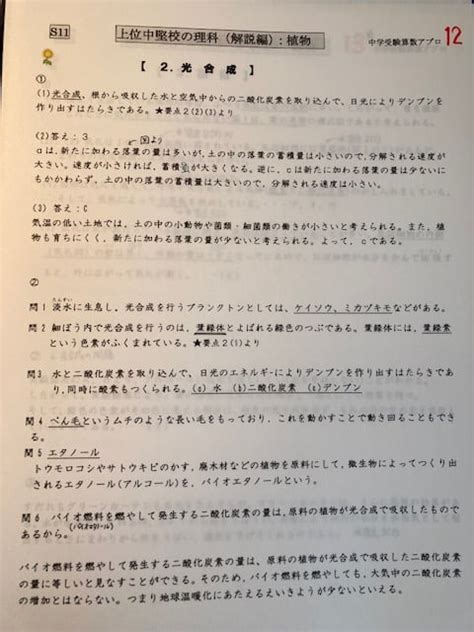 S11
上位中堅校の理科（解説編）：植物
中学受験算数アプロ
12
【 ２．光合成 】
①
(1)光合成、根から吸収した水と空気中からの二酸化炭素を取り込んで、日光によりデンプンを
作り出すはたらき。★要点２(1)より
(2)答え：３ 図より
aは、新たに加わる落葉の量は多いが、土の中の落葉の蓄積量は小さいので、分解される速度が
大きい。速度が小さければ、蓄積量が大きくなる。逆に、cは新たに加わる落葉の量は少ないに
もかかわらず、土の中の落葉の蓄積量は大きいので、分解される速度は小さい。
(3)答え：C
気温の低い土地では、土の中の小動物や菌類・細菌類の働きが小さいと考えられる。また、植
物も育ちにくく、新たに加わる落葉の量が少ないと考えられる。よって、cである。
②
たんすい
問１ 淡水に生息し、光合成を行うプランクトンとしては、ケイソウ、ミカヅキモなどがある。
問２ 細ぼう内で光合成を行うのは、葉緑体とよばれる緑色のつぶである。葉緑体には、葉緑素
という色素がふくまれている。★要点２(1)より
問３ 水と二酸化炭素を取り込んで、日光のエネルギーによりデンプンを作り出すはたらきであ
り、同時に酸素もつくられる。(a)水 (b)二酸化炭素 (c)デンプン
問４ べん毛というムチのような長い毛をもっており、これを動かすことで動き回ることもでき
る。
問５ エタノール
トウモロコシやサトウキビのかす、廃木材などの植物を原料にして、微生物によってつくり出
されるエタノール(アルコール)を、バイオエタノールという。
問６ バイオ燃料を燃やして発生する二酸化炭素の量は、原料の植物が光合成で吸収したもので
(バイオエタノール)
あるから。
バイオ燃料を燃やして発生する二酸化炭素の量は、原料の植物が光合成で吸収した二酸化炭素
の量に等しいと見なすことができる。そのため、バイオ燃料を燃やしても、大気中の二酸化炭素
の増加とはならない。つまり地球温暖化にあたえるえいきょうが少ないといえる。